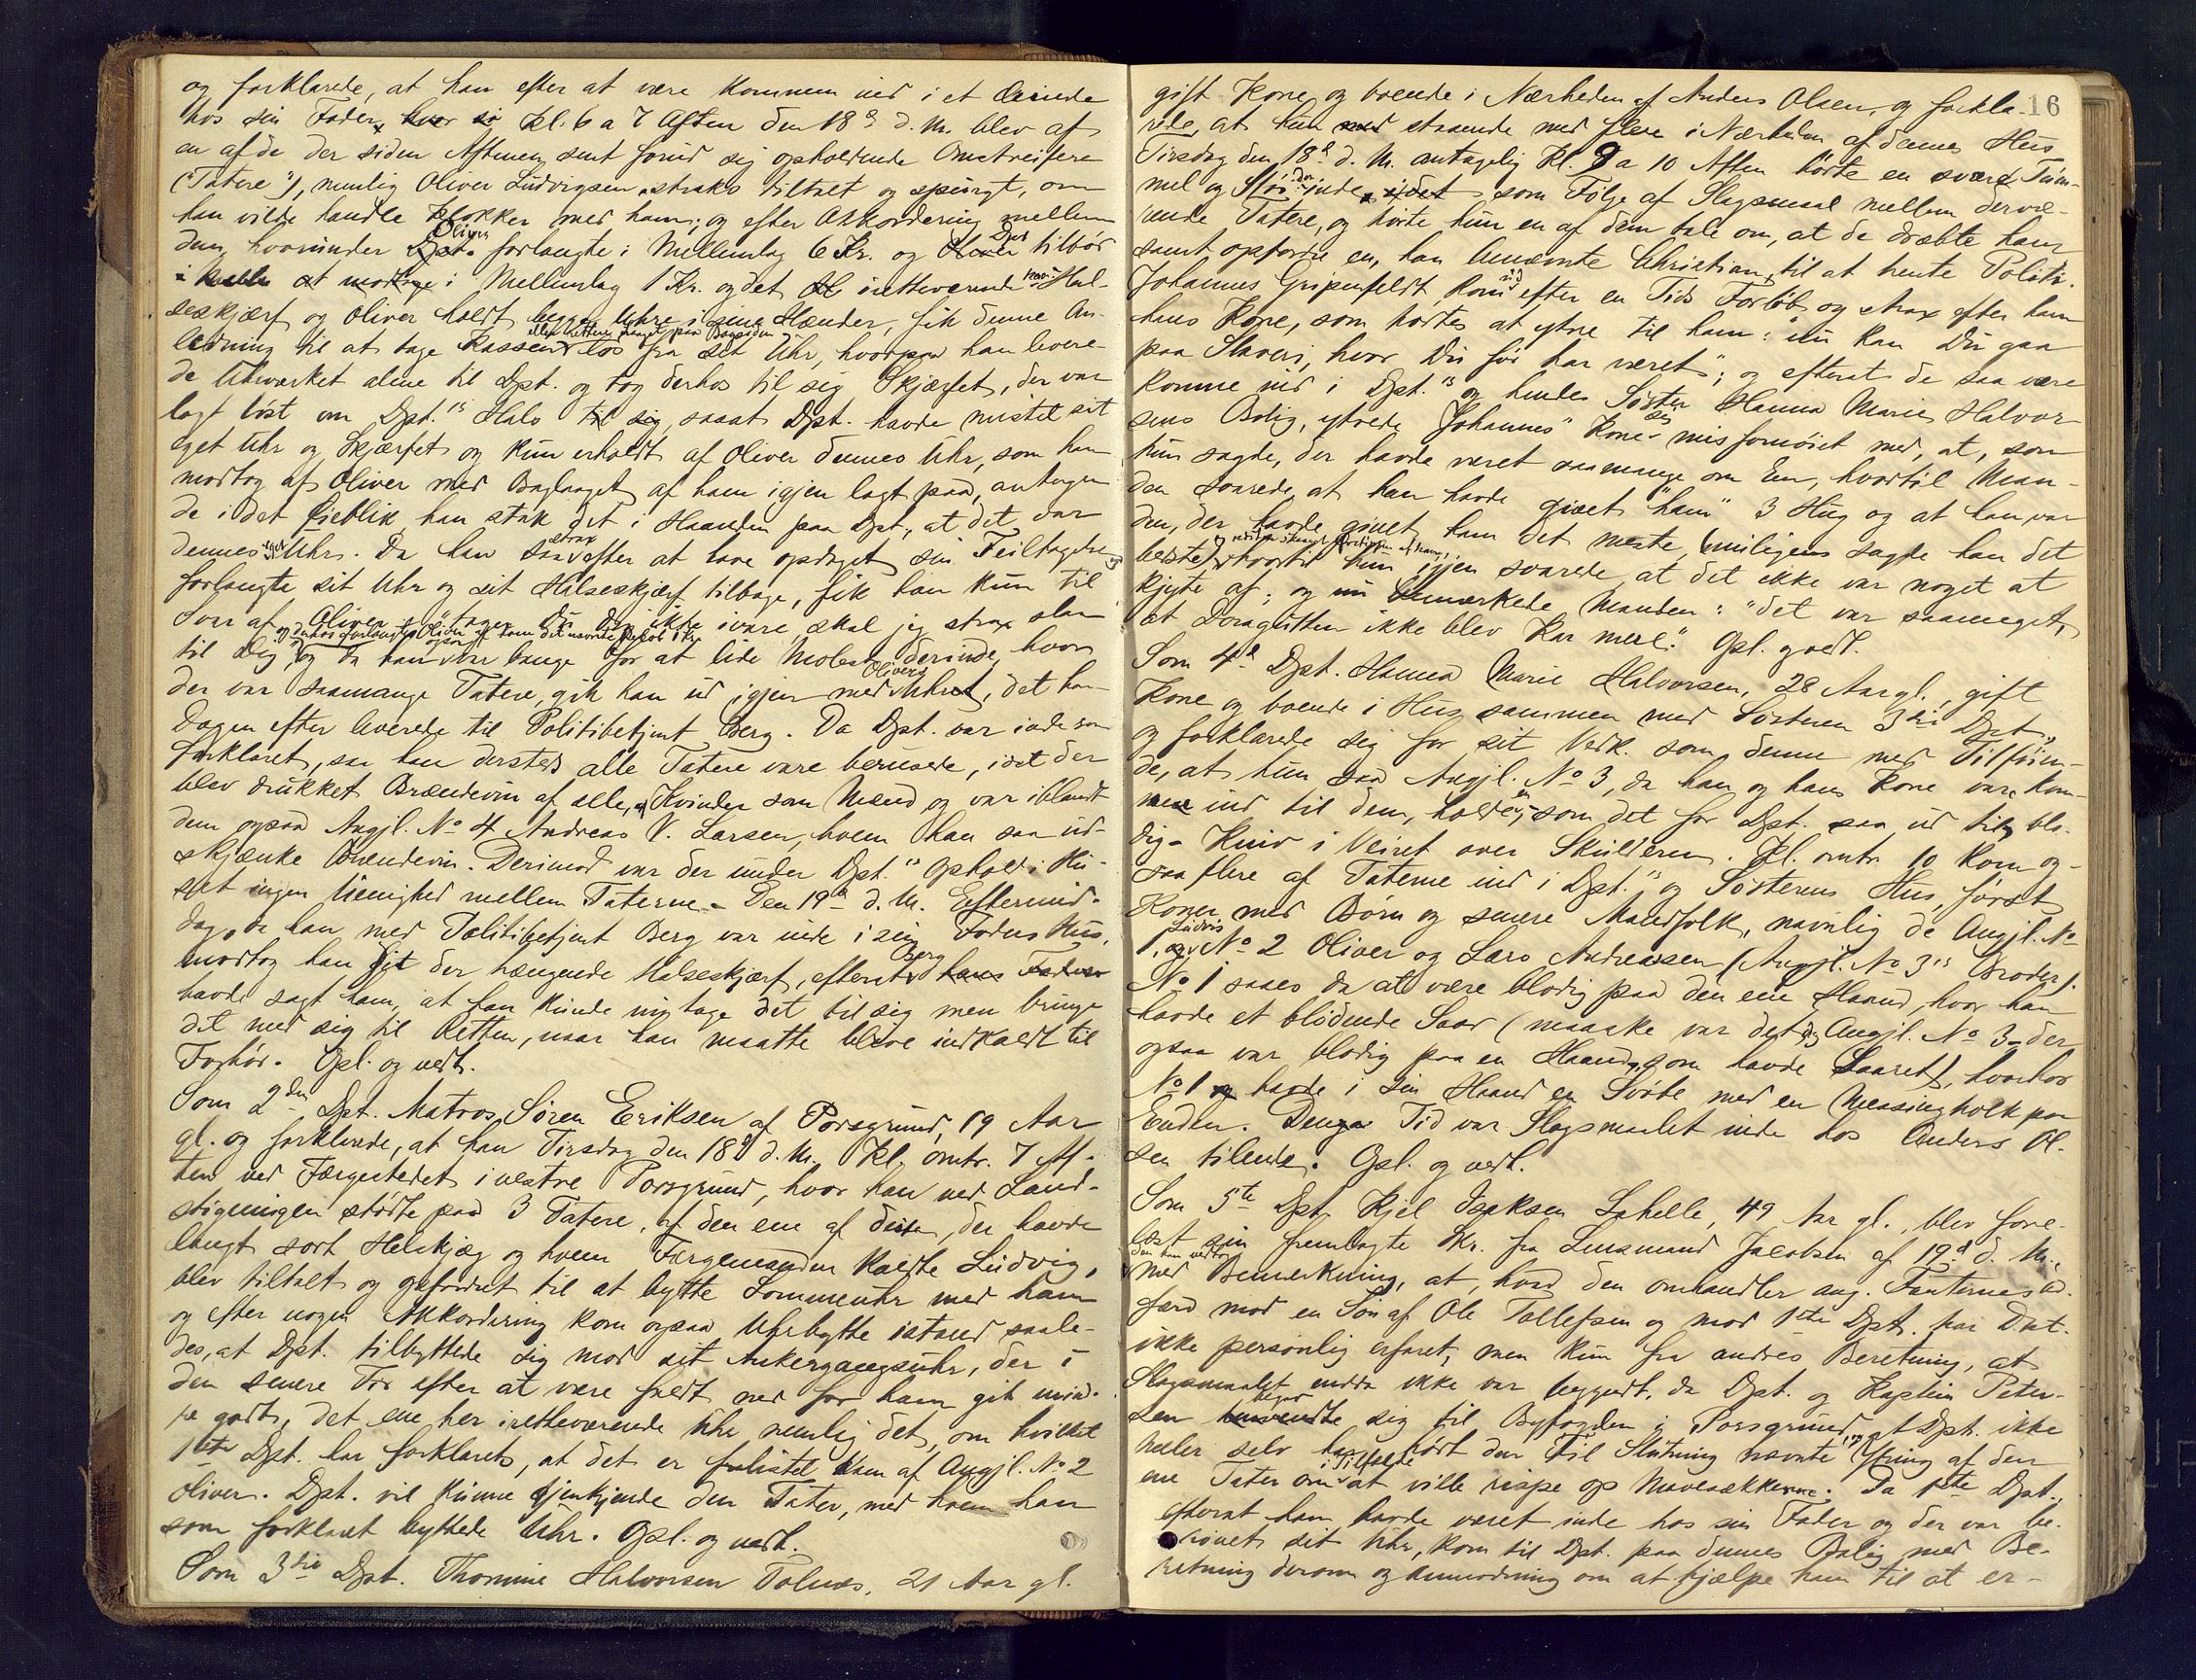 og forklarede, at han efter at være kommen ind i et Ærinde
hos sin Fader, kl. 6 a 7 Aften den 18de d. M. blev af
en af de der siden Aftenen sent forud sig opholdende Omstreifere
("Tatere"), nemlig Oliver Ludvigsen, straks tiltalt og spurgt, om
han vilde handle Klokker med ham; og efter Akkordering mellem
dem, hvorunder Oliver forlangte i Mellemlag 6 Kr. og Dpt. tilbød
i Mellemlag 1 Kr. og det iretteværende Hal-
seskjærf og Oliver holdt begge Uhre i sine Hænder, fik denne An-
ledning til at tage Kassen eller rettere Laaget paa Bagsiden løs fra sit Uhr, hvorpaa han levere-
de Uhrværket alene til Dpt. og tog derhos til sig Skjærfet, der var
lagt løst om Dpt.s Hals, saaat Dpt. havde mistet sit
eget Uhr og Skjærfet og kun erholdt af Oliver dennes Uhr, som han
modtog af Oliver med Baglaaget af ham igjen lagt paa, antagen-
de i det Øieblik han stak det i Haanden paa Dpt., at det var
dennes eget Uhr. Da han strax efter at have opdaget sin Feiltagelse
forlangte sit Uhr og sit Halseskjærf tilbage, fik han kun til
Svar af Oliver: "tager Du Dig ikke ivare, skal jeg strax slaa
til Dig", og da han var bange for at lide Molest derinde, hvor
der var saamange Tatere, gik han ud igjen med Olivers Uhr, det han
Dagen efter leverede til Politibetjent Berg. Da Dpt. var inde som
forklaret, saa han dersteds alle Tatere være berusede, idet der
blev drukket Brændevin af alle, Kvinder som Mænd og var iblandt
dem ogsaa Angjl. No 4 Andreas V. Larsen, hvem han saa ud-
skjænke Brændevin. Derimod var der under Dpt.s Ophold i Hu-
set ingen Uenighed mellem Taterne. Den 19de d. M. Eftermid-
dag, da han med Politibetjent Berg var inde i sin Faders Hus,
modtog han sit der hængende Halseskjærf, efterat Berg
havde sagt ham, at han kunde nu tage det til sig men bringe
det med sig til Retten, naar han maatte blive indkaldt til
Forhør. Opl. og vedt.
Som 2den Dpt. Matros Søren Eriksen af Porsgrund, 19 Aar
gl. og forklarede, at han Tirsdag den 18de d. M. Kl. omtr. 7 Af-
ten ved Færgestedet i vestre Porsgrund, hvor han ved Land-
stigningen stødte paa 3 Tatere, af den ene af disse, der havde
langt sort Helskjæg og hvem Færgemanden kaldte Ludvig,
blev tiltalt og opfordret til at bytte Lommeuhr med ham
og efter nogen Akkordering kom ogsaa Uhrbytte istand saale-
des, at Dpt. tilbyttede sig mod sit Ankergangsuhr, der i
den senere Tid efter at være faldt ned for ham gik min-
re godt, det ene her iretteværende Uhr nemlig det, om hvilket
1ste Dpt. har forklaret, at det er fralistet ham af Angjl. No 2
Oliver. Dpt. vil kunne gjenkjende den Tater, med hvem han
som forklaret byttede Uhr. Opl. og vedt.
Som 3die Dpt. Thomine Halvorsen Tolnæs, 21 Aar gl.
16
gift Kone og boende i Nærheden af Anders Olsen, og forkla-
rede, at hun staaende med flere i Nærheden af dennes Hus
Tirsdag den 18de d. M. antagelig Kl. 9 a 10 Aften hørte en svær Tum-
mel og Støi derinde, som Følge af Slagsmaal mellem dervæ-
rende Tatere, og hørte hun en af dem tale om, at de dræbte ham
samt opfordre en, han benævnte Christian, til at hente Politi.
Johannes Gripenfeldt kom ud efter en Tids Forløb og strax efter ham
hans Kone, som hørtes at ytre til ham: nu kan Du gaa
paa Slaveri, hvor Du før har været"; og efterat de saa være
komne ind i Dpt.s og hendes Søster Hanna Marie Halvor-
sens Bolig, ytrede Johannes' Kone sig misfornøiet med, at, som
hun sagde, der havde været saamange om Een, hvortil Man-
den svarede at han havde givet "ham" 3 Hug og at han var
den, der havde givet ham det meste (muligens sagde han det
beste), hvortil hun igjen svarede, at det ikke var noget at
skryte af; og bemærkede Manden: "det var saameget,
at Doragutten ikke blev Kar mere". Opl. og vedt.
Som 4de Dpt. Hanna Marie Halvorsen, 28 Aar gl., gift
Kone og boende i Hus sammen med Søsteren 3die Dpt.,
og forklarede sig for sit Vedk. som denne med Tilføien-
de, at hun saa Angjl. No 3, da han og hans Kone vare kom-
ne ind til dem, holde en, som det for Dpt. saa ud til, blo-
dig Kniv i Veiret over Skulderen. Kl. omtr. 10 kom og-
saa flere af Taterne ind i Dpt.s og Søsterens Hus, først
Koner med Børn og senere Mandfolk, navnlig de Angjl. No
1 Ludvig, No 2 Oliver og Lars Andreassen (Angjl. No 3's Broder).
No 1 saaes da at være blodig paa den ene Haand, hvor han
havde et blødende Saar (maaske var det dog Angjl. No 3 der
ogsaa var blodig paa en Haand, som havde Saaret), hvorhos
No 1 havde i sin Haand en Svøbe med en Messingholk paa
Enden. Denne Tid var Slagsmaalet inde hos Anders Ol-
sen tilende. Opl. og vedt.
Som 5te Dpt. Kjel Isaksen Lahelle, 49 Aar gl., blev fore-
læst sin fremlagte Skr. fra Lensmand Jacobsen af 19de d. M.,
den han vedtog
med Bemærkning, at, hvad den omhandler ang. Fanternes Ad-
færd mod en Søn af Ole Tollefsen og mod 1ste Dpt. har Dpt.
ikke personlig erfaret, men kun fra andres Beretning, at
Slagsmaalet endda ikke var begyndt, da Dpt. og Kaptein Peter-
sen begav sig til Byfogden i Porsgrund, at Dpt. ikke
heller selv har hørt den til Slutning nævnte Ytring af den
ene Tater om i Tilfælde at ville rispe op Mavesækkene. Da 1ste Dpt.,
efterat han havde været inde hos sin Fader og der var be-
røvet sit Uhr, kom til Dpt. paa dennes Bolig med Be-
retning derom og Anmodning om at hjælpe ham til at er-